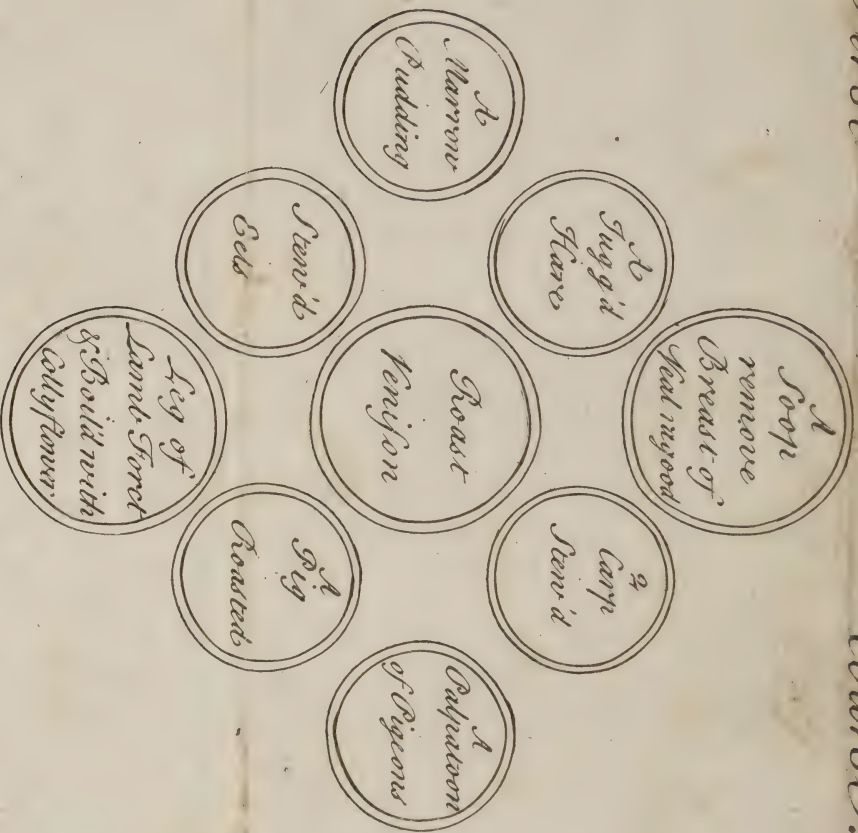 First Course
A
Soop
remove
Breast of
Veal ragood
A
Jugg'd
Hare
2
Carp
Stew'd
A
Marrow
Pudding
Roast
Veniſon
A
Palpatoon
of Pigeons
Stew'd
Eels
A
Pig
Roasted
Leg of
Lamb Forct
& Boild with
Collyflower